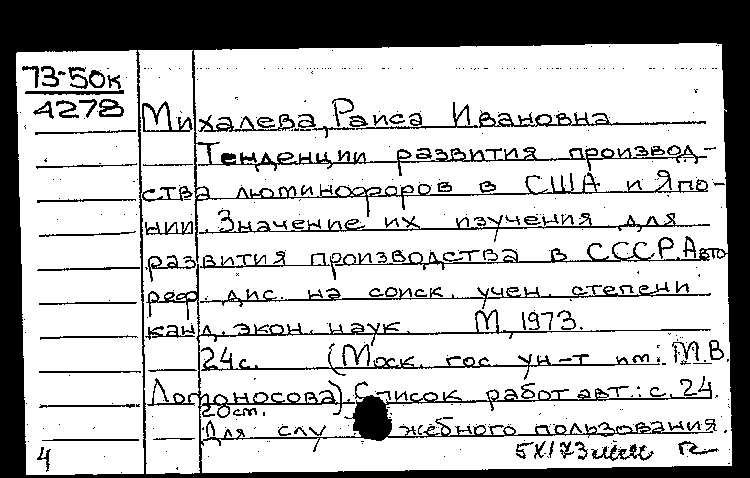 73-50к
4278
Михалева, Раиса Ивановна
Тенденции развития производ-
ства люминофоров в США и Япо-
нии. Значение их изучения для
развития производства в СССР. Авто
реф. дис. на соиск. учен. степени
канд. экон. наук. М., 1973.
24с. (Моск. гос ун-т им. М.В.
Ломоносова). Список работ авт.: с. 24.
20см.
Для служебного пользования.
4